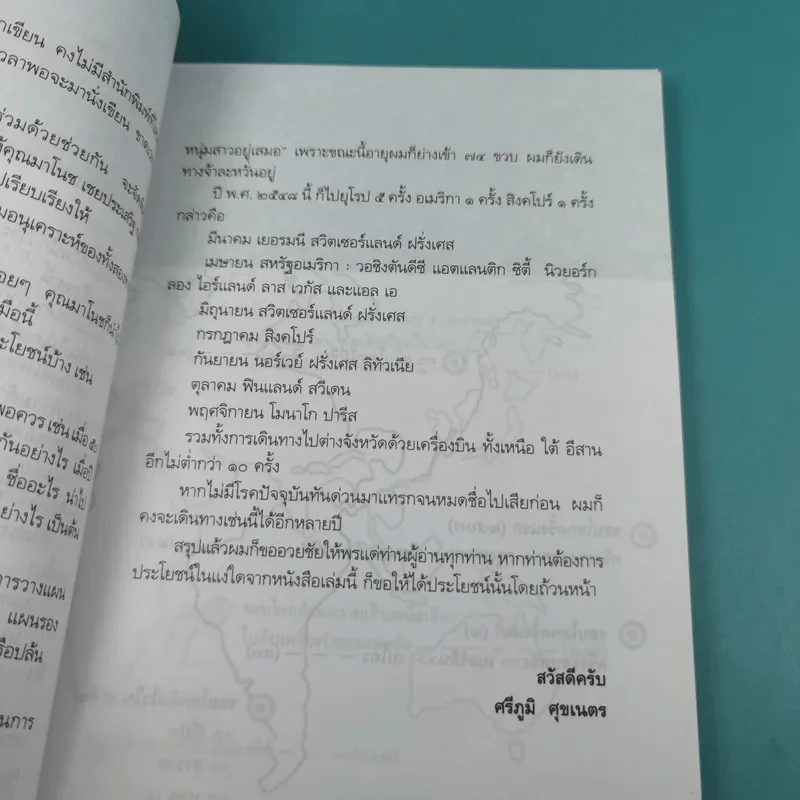 กเขียน คงไม่มีสำนักพิมพ์
วลาพอจะมานั่งเขียน
ร่วมด้วยช่วยกัน
คุณมาโนช เชยประเสริฐ
ปเรียบเรียงให้
มอนุเคราะห์ของทั้งสอง
อยๆ คุณมาโนชก็
มือนี้
ะโยชน์บ้าง เช่น
พอควร เช่น เมื่อ
กันอย่างไร เมื่อปี
ชื่ออะไร น่าไป
อย่างไร เป็นต้น
การวางแผน
แผนรอง
รือปล้น
นการ
หนุ่มสาวอยู่เสมอ" เพราะขณะนี้อายุผมก็ย่างเข้า ๗๔ ขวบ ผมก็ยังเดิน
ทางจ้าละหวั่นอยู่
ปี พ.ศ. ๒๕๔๘ นี้ ก็ไปยุโรป ๕ ครั้ง อเมริกา ๑ ครั้ง สิงคโปร์ ๑ ครั้ง
กล่าวคือ
มีนาคม เยอรมนี สวิตเซอร์แลนด์ ฝรั่งเศส
เมษายน สหรัฐอเมริกา : วอชิงตันดีซี แอตแลนติก ซิตี้ นิวยอร์ก
ลอง ไอร์แลนด์ ลาส เวกัส และแอล เอ
มิถุนายน สวิตเซอร์แลนด์ ฝรั่งเศส
กรกฎาคม สิงคโปร์
กันยายน นอร์เวย์ ฝรั่งเศส ลิทัวเนีย
ตุลาคม ฟินแลนด์ สวีเดน
พฤศจิกายน โมนาโก ปารีส
รวมทั้งการเดินทางไปต่างจังหวัดด้วยเครื่องบิน ทั้งเหนือ ใต้ อีสาน
อีกไม่ต่ำกว่า ๑๐ ครั้ง
หากไม่มีโรคปัจจุบันทันด่วนมาแทรกจนหมดชื่อไปเสียก่อน ผมก็
คงจะเดินทางเช่นนี้ได้อีกหลายปี
สรุปแล้วผมก็ขออวยชัยให้พรแด่ท่านผู้อ่านทุกท่าน หากท่านต้องการ
ประโยชน์ในแง่ใดจากหนังสือเล่มนี้ ก็ขอให้ได้ประโยชน์นั้นโดยถ้วนหน้า
สวัสดีครับ
ศรีภูมิ ศุขเนตร